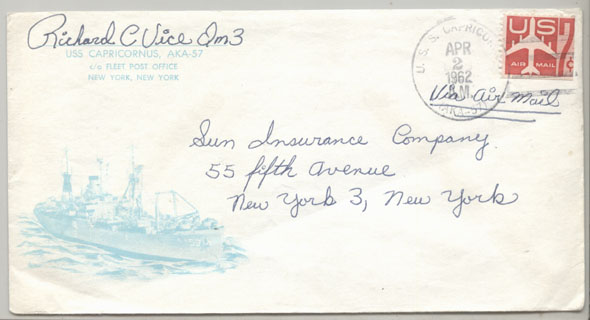 Richard C. Vice Qm3
USS CAPRICORNUS, AKA-57
c/o FLEET POST OFFICE
NEW YORK, NEW YORK
U. S. S. CAPRICO
APR
2
1962
M
(AKA-57)
US
AIR MAIL
Via Air Mail
Sun Insurance Company
55 fifth Avenue
New York 3, New York